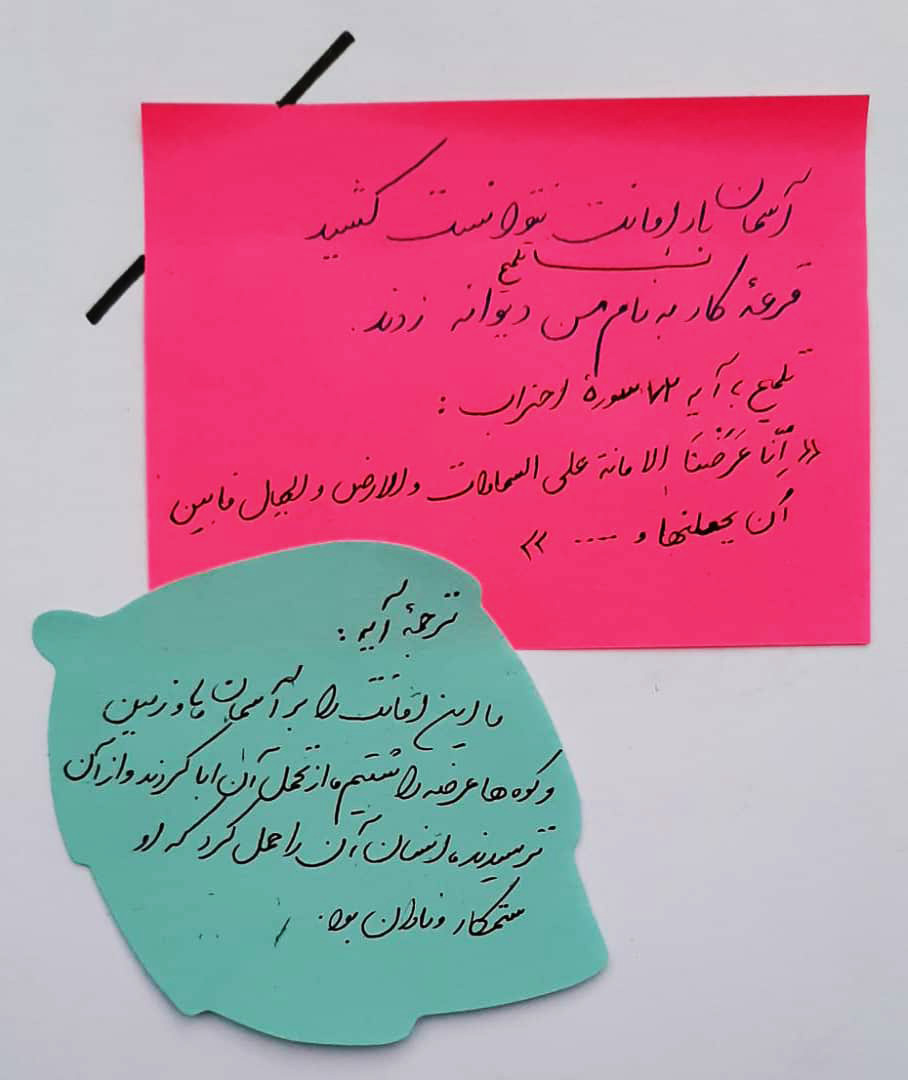 آسمان بار امانت نتوانست کشید
تلمیح
قرعهٔ کار به نام من دیوانه زدند.
تلمیح به آیه ۷۲ سورهٔ احزاب:
«اِنّا عَرَضْنَا الامانة علی السماوات والارض والجبال فابین
اُن یحملنها و .... »
ترجمهٔ آیه:
ما این امانت را بر آسمان ها و زمین
و کوه ها عرضه داشتیم، از تحمل آن ابا کردند و از آن
ترسیدند، انسان آن را حمل کرد که او
ستمکار و نادان بود.